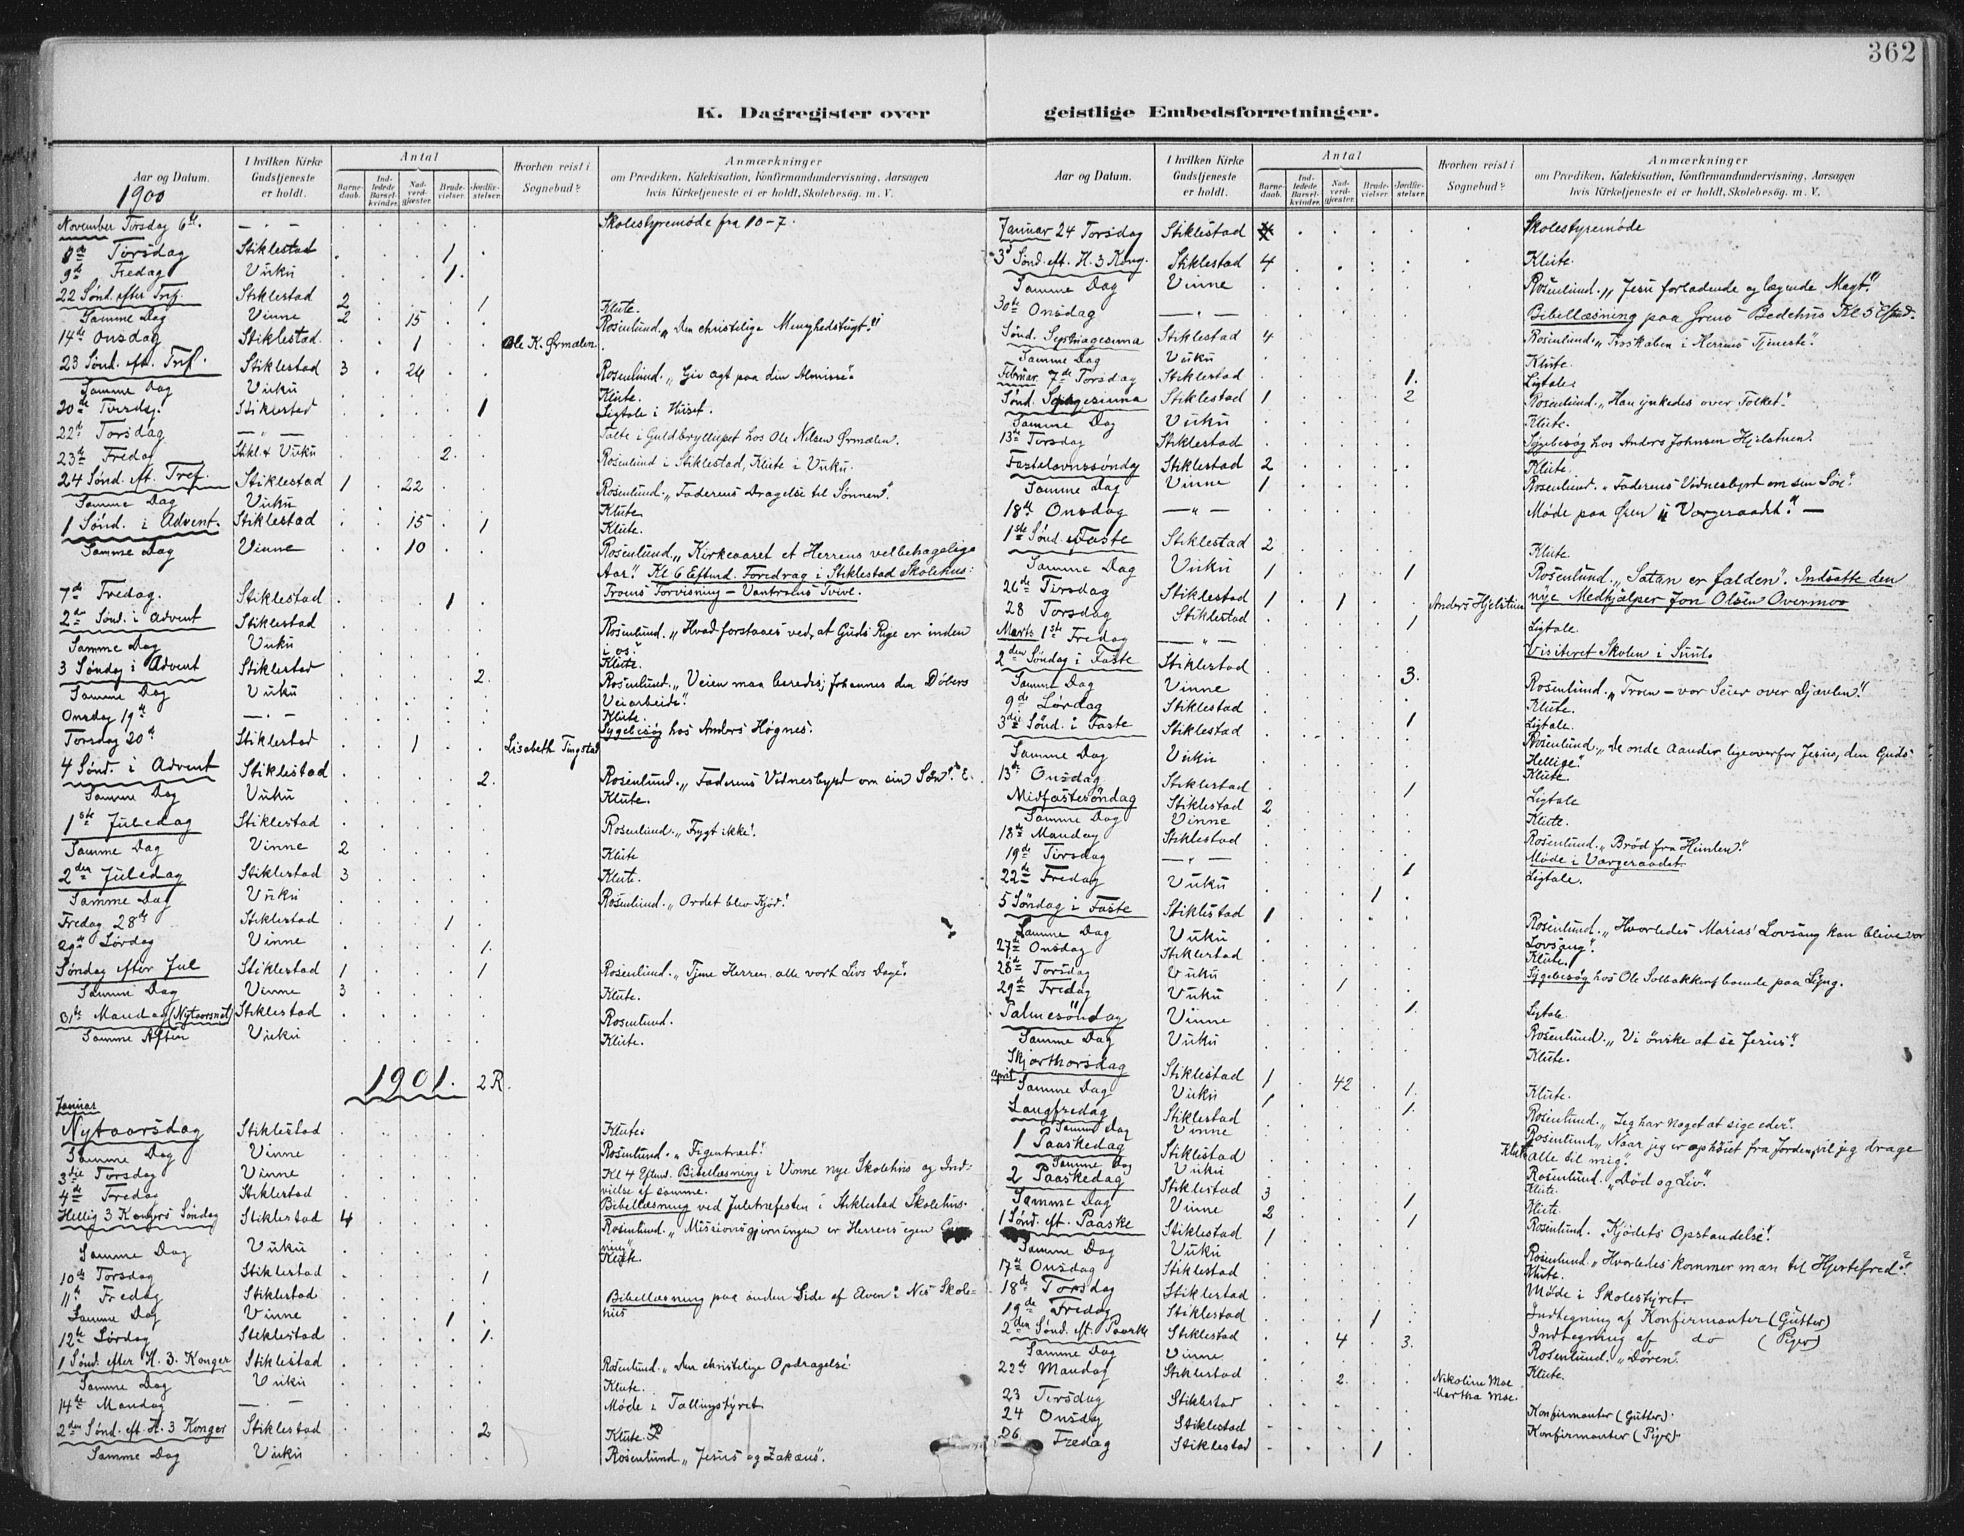 362
K. Dagregister over
geistlige Embedsforretninger.
Aar og Datum.
1900
I hvilken Kirke Gudstjeneste er holdt.
Antal
Barne-daab.
Ind-ledede Barsel-kvinder.
Nad-verd-gjæster.
Brude-vielser.
Jordfæ-stelser.
Hvorhen reist i Sognebud?
Anmærkninger
om Prædiken, Katekisation, Konfirmandundervisning, Aarsagen
hvis Kirketjeneste ei er holdt, Skolebesøg. m. V.
November Torsdag 6te. — " — Skolestyremøde fra 10-7.
8de Torsdag Stiklestad 1
9de Fredag Vuku 1.
22 Sønd. efter Tref. Stiklestad 2 1 Klüte.
Samme Dag Vinne 2 15 Rosenlund. „Den christelige Menighedstugt."
14de Onsdag Stiklestad. 1 Ole K. Ørmælen
23 Sønd. eft. Tref. Stiklestad 3 24 Rosenlund. „Giv agt paa din Almisse."
Samme Dag Vuku Klüte.
20de Tirsdg. Stiklestad 1 Ligtale i Huset.
22de Torsdag — " — Talte i Guldbryllupet hos Ole Nilsen Ørmælen.
23de Fredag Stikl. & Vuku 2. Rosenlund i Stiklestad, Klüte i Vuku.
24 Sønd. eft. Tref. Stiklestad 1 22 Rosenlund. „Faderens Dragelse til Sønnen."
Samme Dag Vuku Klüte.
1 Sønd. i Advent. Stiklestad 15 1 Klüte.
Samme Dag Vinne 10 Rosenlund „Kirkeaaret et Herrens velbehagelige
Aar." Kl 6 Eftmd. Foredrag i Stiklestad Skolehus:
Troens Forvisning — Vantroens Tvivl.
7de Fredag. Stiklestad 1
2den Sønd. i Advent Stiklestad Rosenlund. „Hvad forstaaes ved, at Guds Rige er inden
i os."
Samme Dag Vuku Klüte.
3 Søndag i Advent Stiklestad 2. Rosenlund. „Veien maa beredes; Johannes den Döbers
Veiarbeide."
Samme Dag Vuku Klüte.
Onsdag 19de — " — Sygebesøg hos Anders Høgnes.
Torsdag 20de Stiklestad 1 Lisabeth Tingstad
4 Sønd. i Advent Stiklestad 2. Rosenlund. „Faderens Vidnesbyrd om sin Søn".
Samme Dag Vuku Klüte.
1ste Juledag Stiklestad Rosenlund. „Frygt ikke".
Samme Dag Vinne 2 Klüte
2den Juledag Stiklestad 3 Klüte.
Samme Dag Vuku Rosenlund. „Ordet blev Kjød."
Fredag 28de Stiklestad 1
29de Lørdag Vinne 1.
Søndag efter Jul Stiklestad 1 1 Rosenlund. „Tjene Herren alle vort Livs Dage".
Samme Dag Vinne 3 Klüte.
31te Mandag (Nytaarsnat) Stiklestad Rosenlund.
Samme Aften Vuku Klüte.
1901. 2 R.
Januar
Nytaarsdag Stiklestad Klüte.
Samme Dag Vinne Rosenlund. „Figentræet".
3die Torsdag Vinne Kl 4 Eftmd. Bibellæsning i Vinne nye Skolehus og Ind-
vielse af samme.
4de Fredag Stiklestad Bibellæsning ved Juletræfesten i Stiklestad Skolehus.
Hellig 3 Kongers Søndag Stiklestad 4 Rosenlund. „Missionsgjerningen er Herrens egen
ning"
Samme Dag Vuku Klüte.
10de Torsdag Stiklestad 1
11te Fredag Stiklestad Bibellæsning paa anden Side af Elven: Nes Skole-
hus
Samme Dag Vinne 1
12te Lørdag Stiklestad 1.
1 Sønd. efter H. 3. Konger Stiklestad Rosenlund. „Den christelige Opdragelse."
Samme Dag Vuku Klüte.
14de Mandag — " — Møde i Tællingstyret
2den Sønd. eft. H. 3 Konger Stiklestad 2 Klüte.
Samme Dag Vuku Rosenlund „Jesus og Zakæus".
Aar og Datum.
I hvilken Kirke Gudstjeneste er holdt.
Antal
Barne-daab.
Ind-ledede Barsel-kvinder.
Nad-verd-gjæster.
Brude-vielser.
Jordfæ-stelser.
Hvorhen reist i Sognebud?
Anmærkninger
om Prædiken, Katekisation, Konfirmandundervisning, Aarsagen
hvis Kirketjeneste ei er holdt, Skolebesøg. m. V.
Januar 24 Torsdag Stiklestad Skolestyremøde
3die Sønd. eft. H. 3 Kong. Stiklestad 4 Klüte.
Samme Dag Vinne Rosenlund. „Jesu forladende og lægende Magt."
30te Onsdag — " — Bibellæsning paa Ørens Bedehus Kl 5 Eftmd.
Sønd. Septuagesima Stiklestad 4 Rosenlund. „Troskaben i Herrens Tjeneste".
Samme Dag Vuku Klüte.
Februar 7de Torsdag Stiklestad 1. Ligtale.
Sønd. Sexagesima Stiklestad 1 2 Rosenlund. „Han ynkedes over Folket."
Samme Dag Vuku Klüte.
13de Torsdag Stiklestad Sygebesøg hos Anders Johnsen Hjelstuen.
Fastelavnssøndag Stiklestad 2 Klüte.
Samme Dag Vinne 1 Rosenlund. „Faderens Vidnesbyrd om sin Søn".
18de Onsdag — " — Møde paa Øren i Værgeraadet." —
1ste Sønd. i Faste Stiklestad 2 Klüte.
Samme Dag Vuku 1 1 Rosenlund. „Satan er falden". Indsatte den
nye Medhjælper Jon Olsen Overmoe
26de Tirsdag Stiklestad 1 1 Anders Hjelstuen
28 Torsdag Stiklestad 1 Ligtale.
Marts 1ste Fredag — " — Visiteret Skolen i Suul.
2den Søndag i Faste Stiklestad 3. Rosenlund. „Troen — vor Seier over Djævlen".
Samme Dag Vinne Klüte.
9de Lørdag Stiklestad 1 Ligtale.
3die Sønd. i Faste Stiklestad Rosenlund. „De onde Aander ligeoverfor Jesus, den Guds
Hellige."
Samme Dag Vuku Klüte.
13de Onsdag Stiklestad 1 Ligtale
Midfastesöndag Stiklestad 2 Klüte.
Samme Dag Vinne Rosenlund. „Brød fra Himlen".
18de Mandag Stiklestad Møde i Værgeraadet
19de Tirsdag — " — 1 Ligtale.
22de Fredag Vuku 1
5 Søndag i Faste Stiklestad 1 Rosenlund. „Hvorledes Marias' Lovsang kan blive vor
Lovsang."
Samme Dag Vuku Klüte.
27de Onsdag Stiklestad Sygebesøg hos Ole Solbakken, boende paa Lyng.
28de Torsdag Vuku 1
29de Fredag Vuku 1. Ligtale.
Palmesöndag Vinne Rosenlund. „Vi önske at se Jesus".
Samme Dag Vuku Klüte.
Skjærthorsdag Stiklestad 1 42 1. Klüte.
April
Samme Dag Vuku 1 1. Rosenlund. „Jeg har noget at sige eder".
Langfredag Stiklestad Rosenlund „Naar jeg er ophöiet fra Jorden, vil jeg drage
alle til mig".
Samme Dag Vinne Klüte
1 Paaskedag Stiklestad Rosenlund. „Død og Liv".
Samme Dag Vuku Klüte.
2 Paaskedag Stiklestad 3 1 Klüte.
Samme Dag Vinne 2 1 Rosenlund. „Kjødets Opstandelse".
1 Sønd. eft. Paaske Stiklestad 1 Rosenlund. „Hvorledes kommer man til Hjertefred"?
Samme Dag Vuku Klüte.
17de Onsdag Stiklestad Møde i Skolestyret.
18de Torsdag Stiklestad Indtegning af Konfirmanter (Gutter)
19de Fredag Stiklestad 1 Indtegning af do (Piger)
2den Sønd. eft. Paaske Stiklestad 4 3. Rosenlund. „Døren".
Samme Dag Vinne Klüte.
22de Mandag Stiklestad 2. Nikoline Moe
Martha Moe.
23 Tirsdag Stiklestad Konfirmanter (Gutter).
24 Onsdag Stiklestad Konfirmanter (Piger)
26 Fredag Stiklestad 1